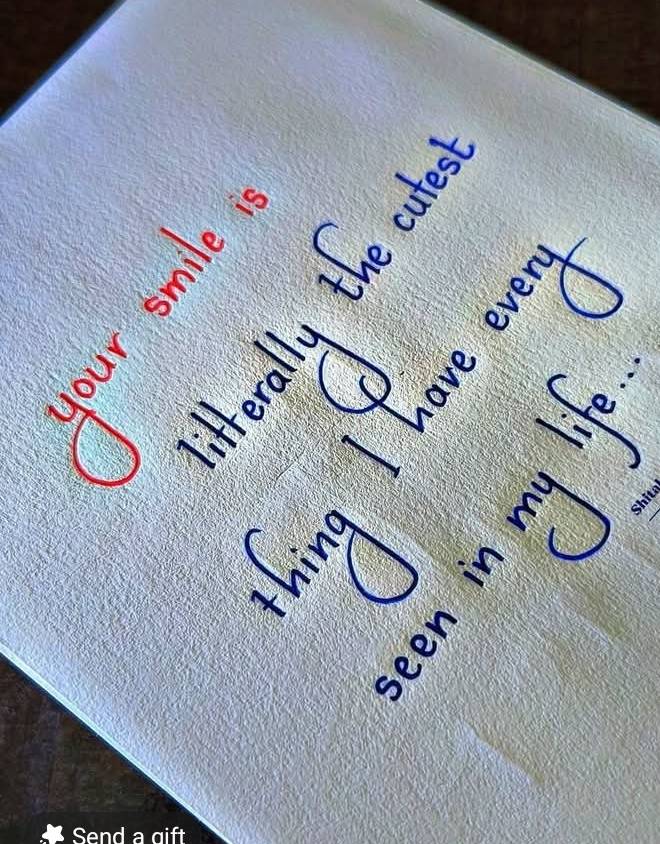 your smile is
litterally the cutest
thing I have every
seen in my life...
Send a gift